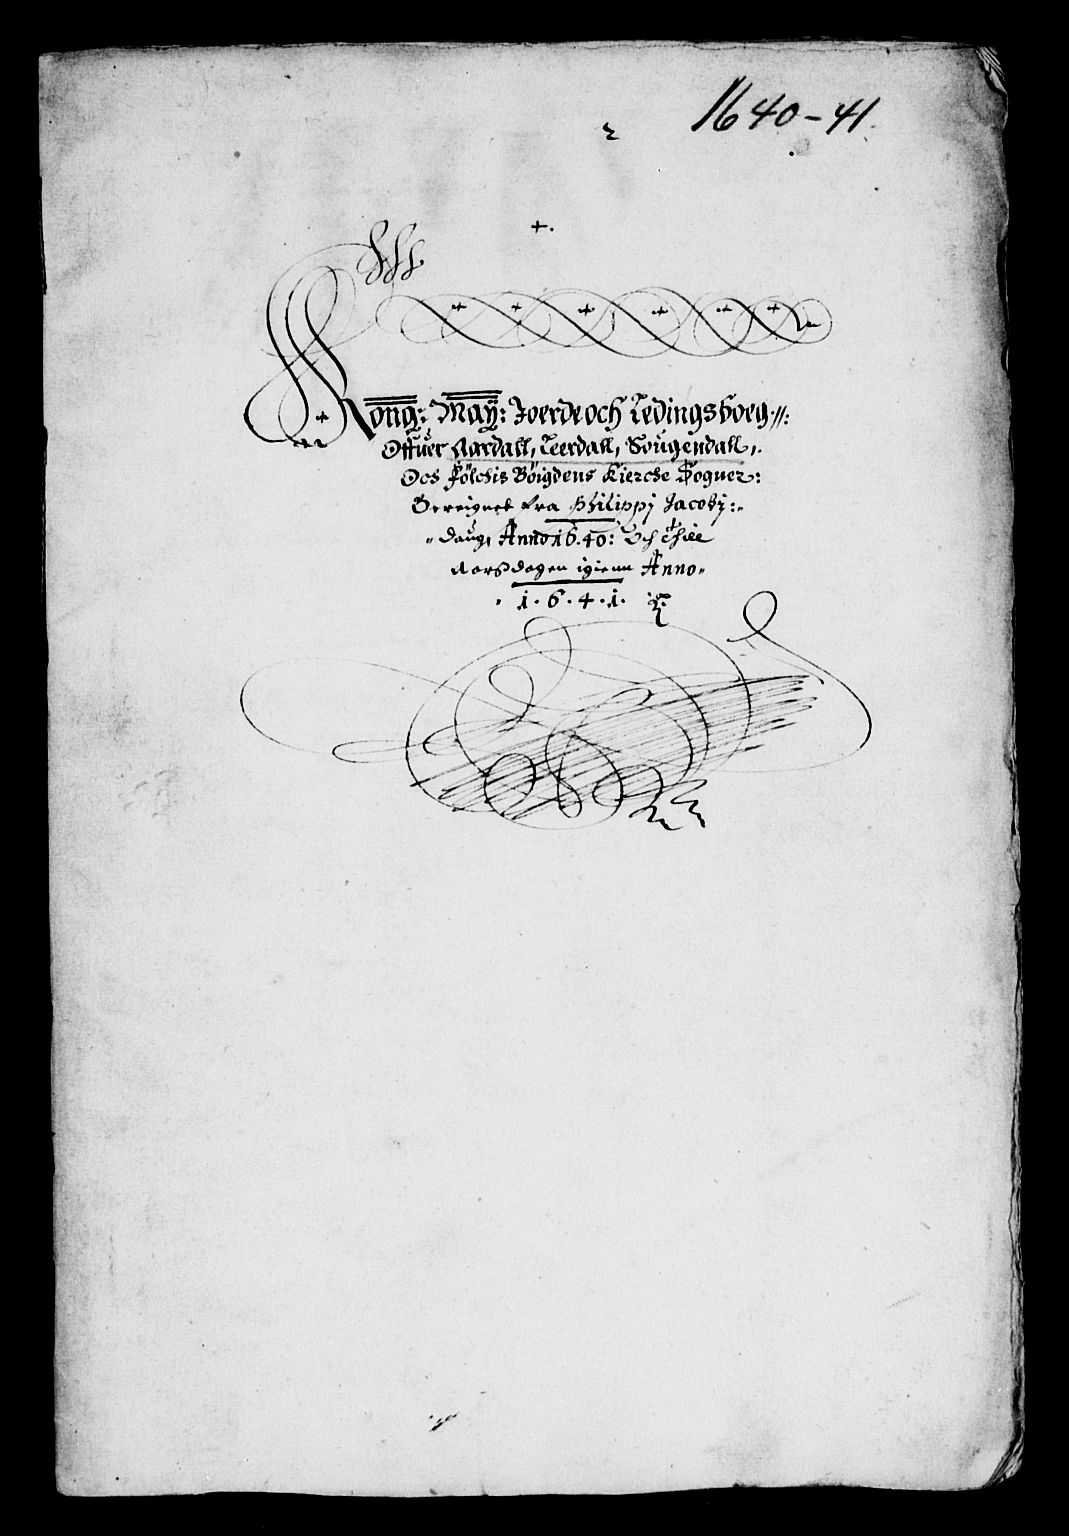 1640-41.
Kong: Maÿ: Joerde och Ledingsboeg
Offuer Aardall, Leerdall, Sougendall,
Och Fölchis Böigdens Kierche Sogner:
Bereignet fra Philippj Jacobj:
daug, Anno 1640: Och thill
Aarsdagen igienn Anno
1.6.4.1.